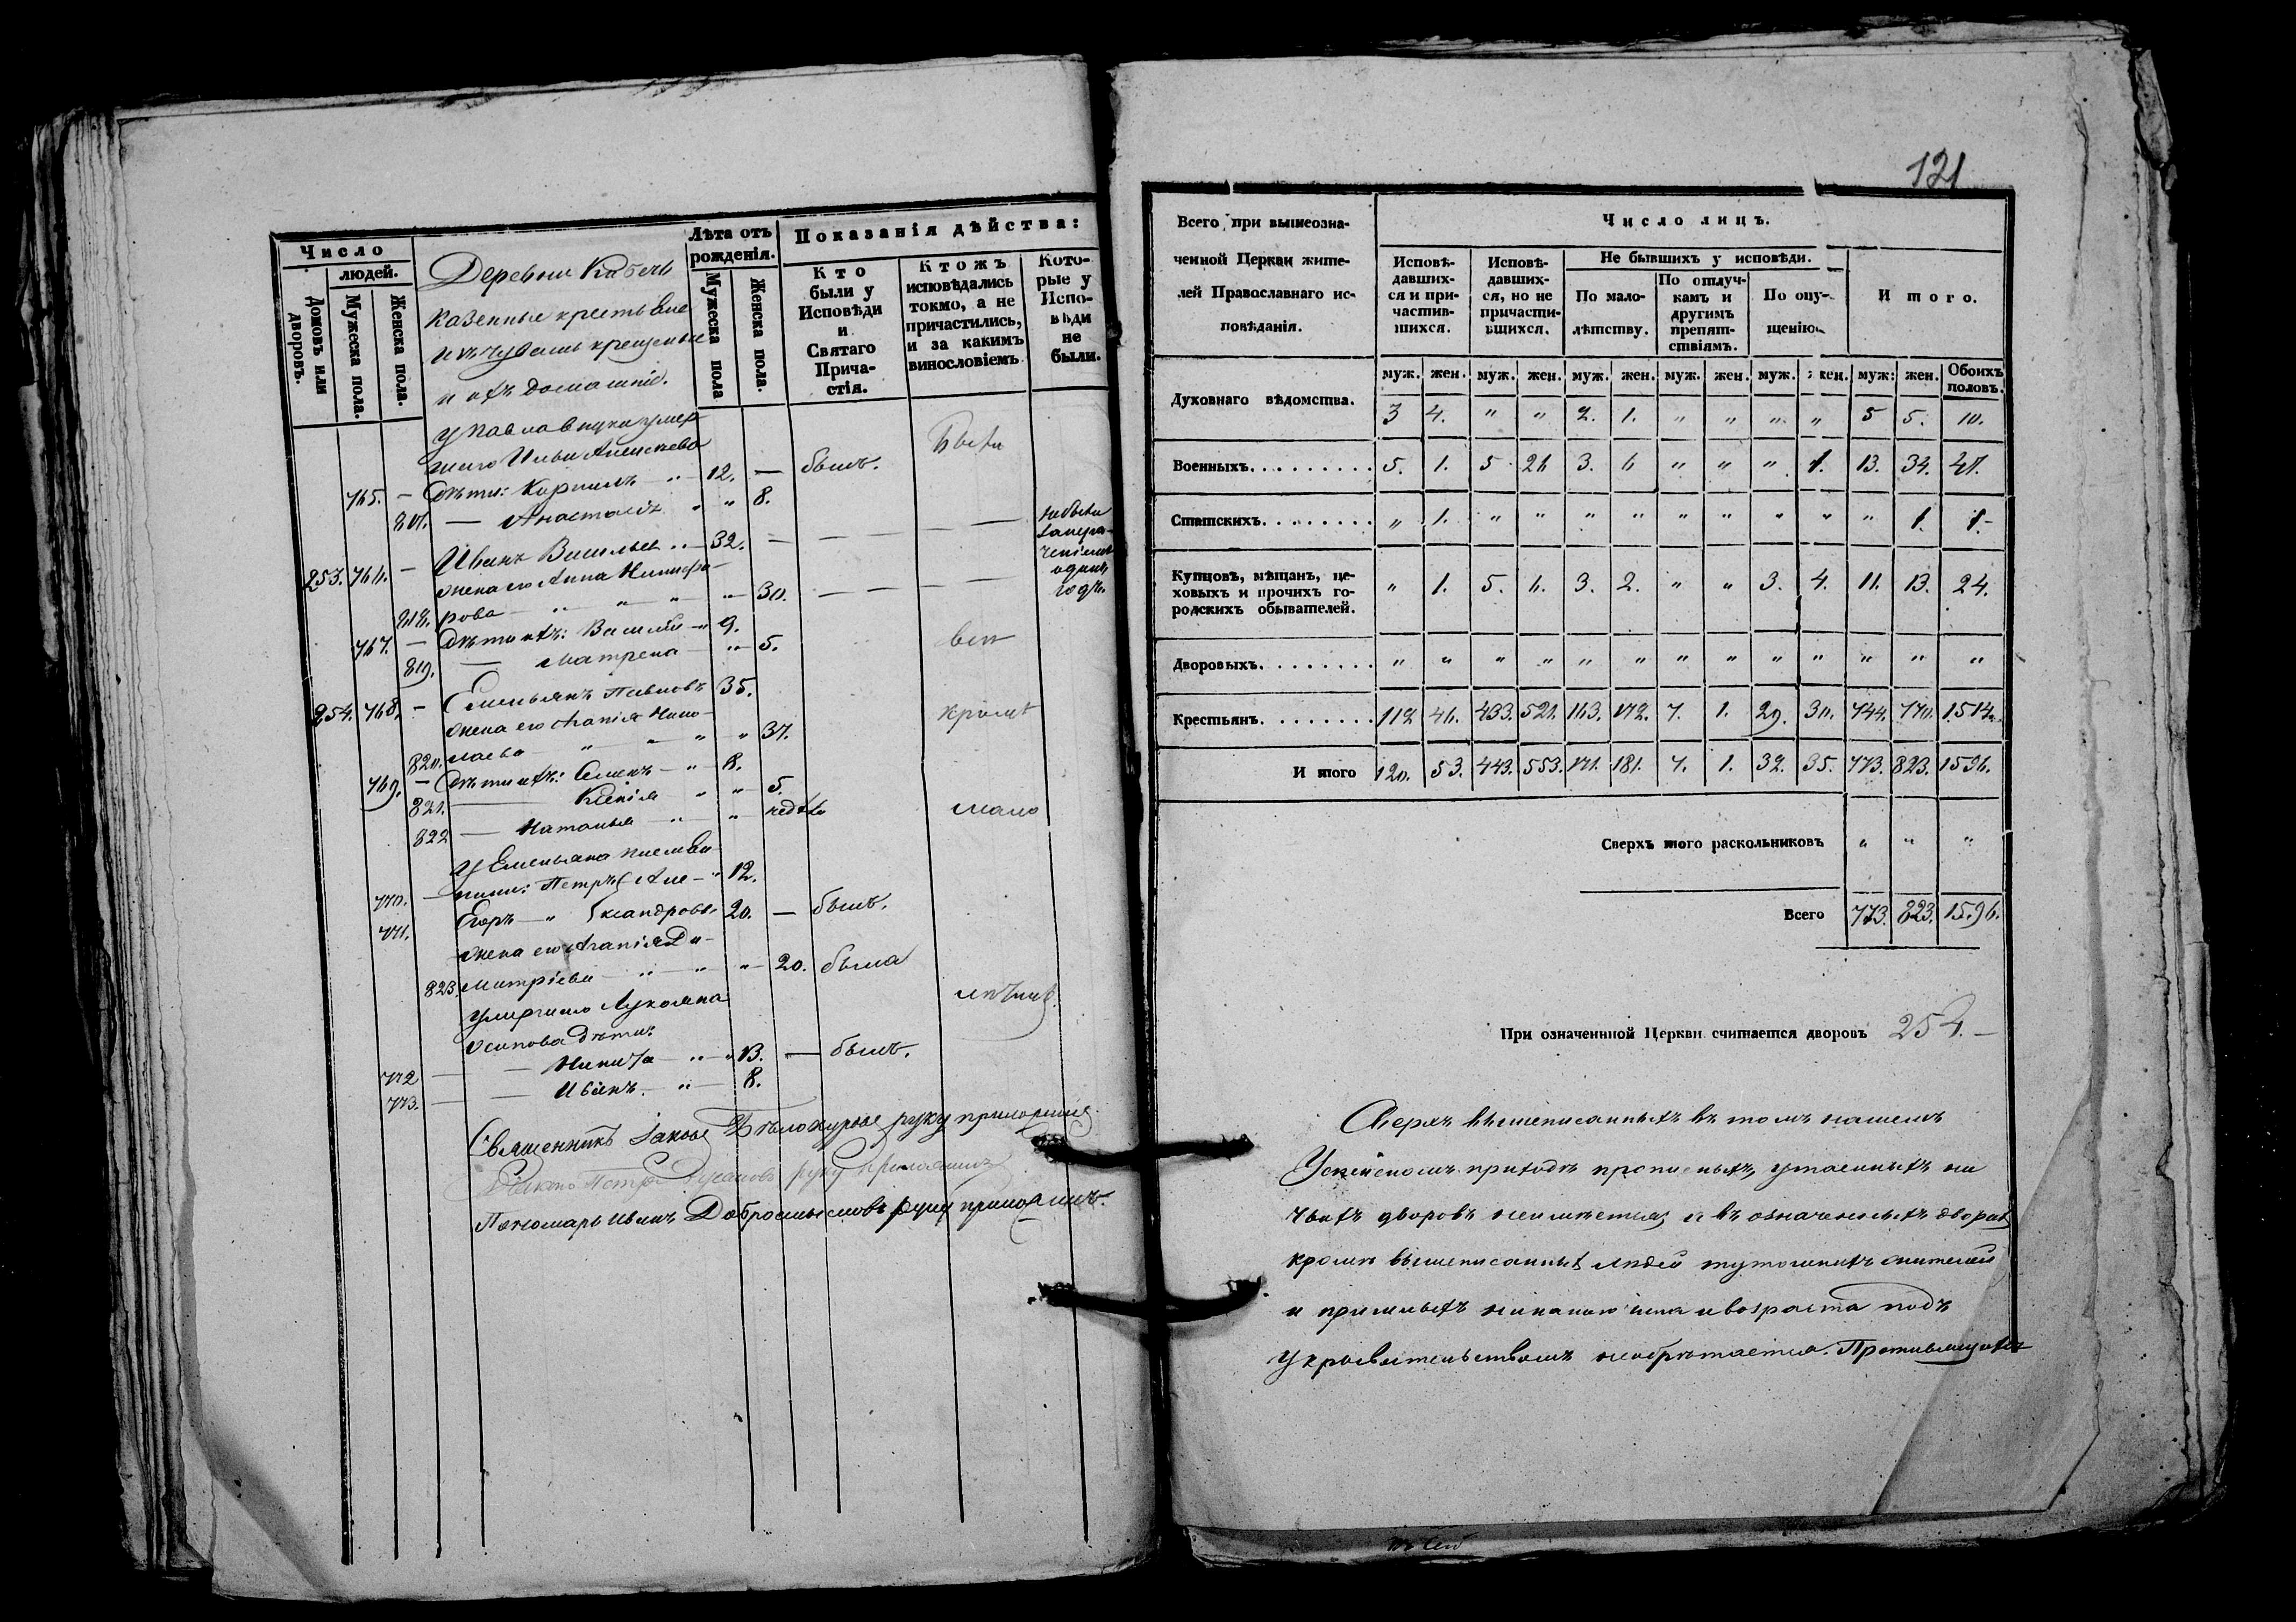 Число
людей.
Домовъ или дворовъ.
Мужеска пола.
Женска пола.
Лѣта отъ рожденія.
Мужеска пола
Женска пола.
Показанія дѣйства:
Кто были у Исповѣди и Святаго Причастія.
Ктожъ исповѣдались токмо, а не причастились, и за какимъ винословіемъ
Которые у Исповѣди не были.
Деревни
казенные крестьяне
изъ чувашъ крещеные
и ихъ домашніе.
у Павла внуки умер-
шаго Ильи Алексѣева
765. — дѣти: Кирилъ „ 12. — былъ.
817. — Анастасія „ „ 8.
253. 766. — Иванъ Васильевъ „ 32. —
жена его Анна Никифо-
818. рова „ „ „ „ 30. — —
767. — дѣти ихъ: Василій „ 9.
819. — Матрена „ 5.
254. 768. — Емельянъ Павловъ 35.
жена его Агапія Нико-
820. лаева „ „ „ „ 37.
769. — дѣти ихъ: Семенъ „ 8.
821. Ксенія „ „ 5.
822 — Наталья „ „
у Емельяна племян-
770. — ники: Петръ Але- „ 12.
771. Егоръ „ ксандровы 20. — былъ.
жена его Агапія Ди-
823. митріева „ „ „ 20. была
умершаго Лукояна
Осипова дѣти:
772 — — Никита „ „ 13. — былъ.
773. — — Иванъ „ 8.
не были
одинъ
годъ.
всѣ
кромѣ
мало
лѣтнихъ
Священникъ Іаковъ Бѣлокуровъ руку приложилъ
Пономарь Иванъ Добросмысловъ руку приложилъ.
121
Всего при вышеозначенной Церкви жителей Православнаго исповѣданія.
Число лицъ.
Исповѣдавшихся и причастившихся.
Исповѣдавшихся, но не причастившихся.
Не бывшихъ у исповѣди.
По малолѣтству.
По отлучкамъ и другимъ препятствіямъ.
По опущенію
Итого.
муж. жен. муж. жен. муж. жен. муж. жен. муж. жен. муж: жен. Обоихъ половъ.
Духовнаго вѣдомства. 3 4. „ „ 2. 1. „ „ „ „ 5 5. 10.
Военныхъ. 5. 1. 5. 26 3. 6 „ „ „ 1. 13. 34. 47.
Статскихъ. „ 1. „ „ „ „ „ „ „ „ „ 1. 1.
Купцовъ, мѣщанъ, цеховыхъ и прочихъ городскихъ обывателей. „ 1. 5. 6. 3. 2. „ „ 3. 4. 11. 13. 24.
Дворовыхъ. „ „ „ „ „ „ „ „ „ „ „ „ „
Крестьянъ. 112 46. 433. 521. 163. 172. 7. 1. 29. 30. 744. 770. 1514.
И того 120. 53. 443. 553. 171. 181. 7. 1. 32. 35. 773. 823. 1596.
Сверхъ того раскольниковъ „ „ „
Всего 773. 823. 1596.
При означеннной Церкви считается дворовъ 254. —
Сверхъ вышеписанныхъ въ томъ нашемъ
Успенскомъ приходѣ прописныхъ, утаенныхъ ни
чьихъ дворовъ не имѣется, и въ означенныхъ дворахъ
кромѣ вышеписанныхъ людей тутошнихъ жителей
и пришлыхъ никакого чина и возраста подъ
укрывательствомъ не обрѣтается.